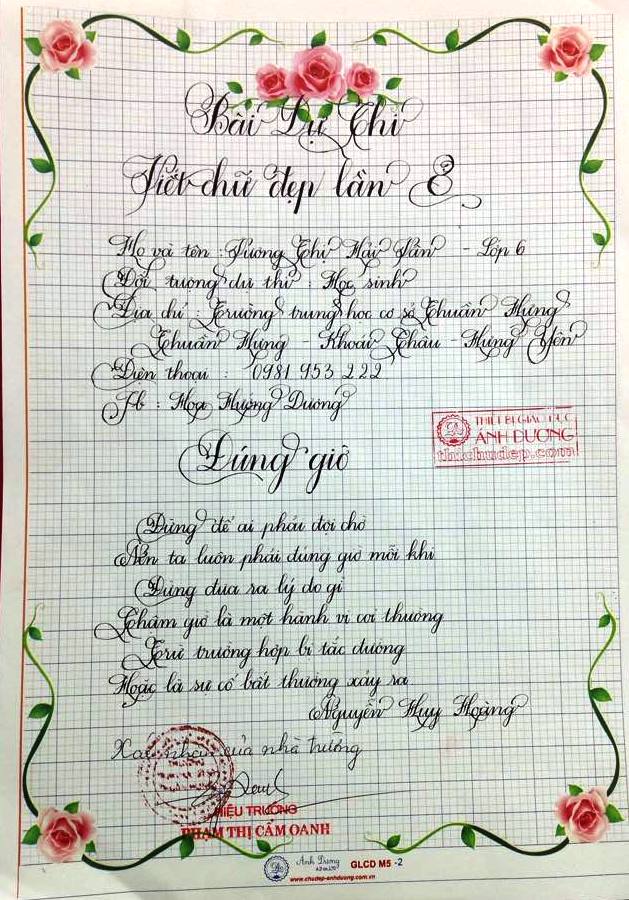 Bài Dự Thi
Viết chữ đẹp lần 8
Họ và tên : Dương Thị Hải - Lớp 6
Đối tượng dự thi : Học sinh
Địa chỉ : Trường trung học cơ sở Thuần Hưng
Thuần Hưng - Khoái Châu - Hưng Yên
Điện thoại : 0981 953 222
Fb : Hoa Hương Dương
THIẾT BỊ GIÁO DỤC
ÁNH DƯƠNG
thichudep.com
Đúng giờ
Đừng để ai phải đợi chờ
Nên ta luôn phải đúng giờ mỗi khi
Đừng đưa ra lý do gì
Chậm giờ là một hành vi coi thường
Trừ trường hợp bị tắc đường
Hoặc là sự cố bất thường xảy ra
Nguyễn Huy Hoàng
Xác nhận của nhà trường
HIỆU TRƯỞNG
PHẠM THỊ CẨM OANH
Ánh Dương
GLCD M5 -2
www.chudep-anhduong.com.vn